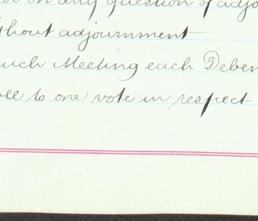 on any question of adjo
thout adjournment
uch Meeting each Deben
oll to one vote in respect